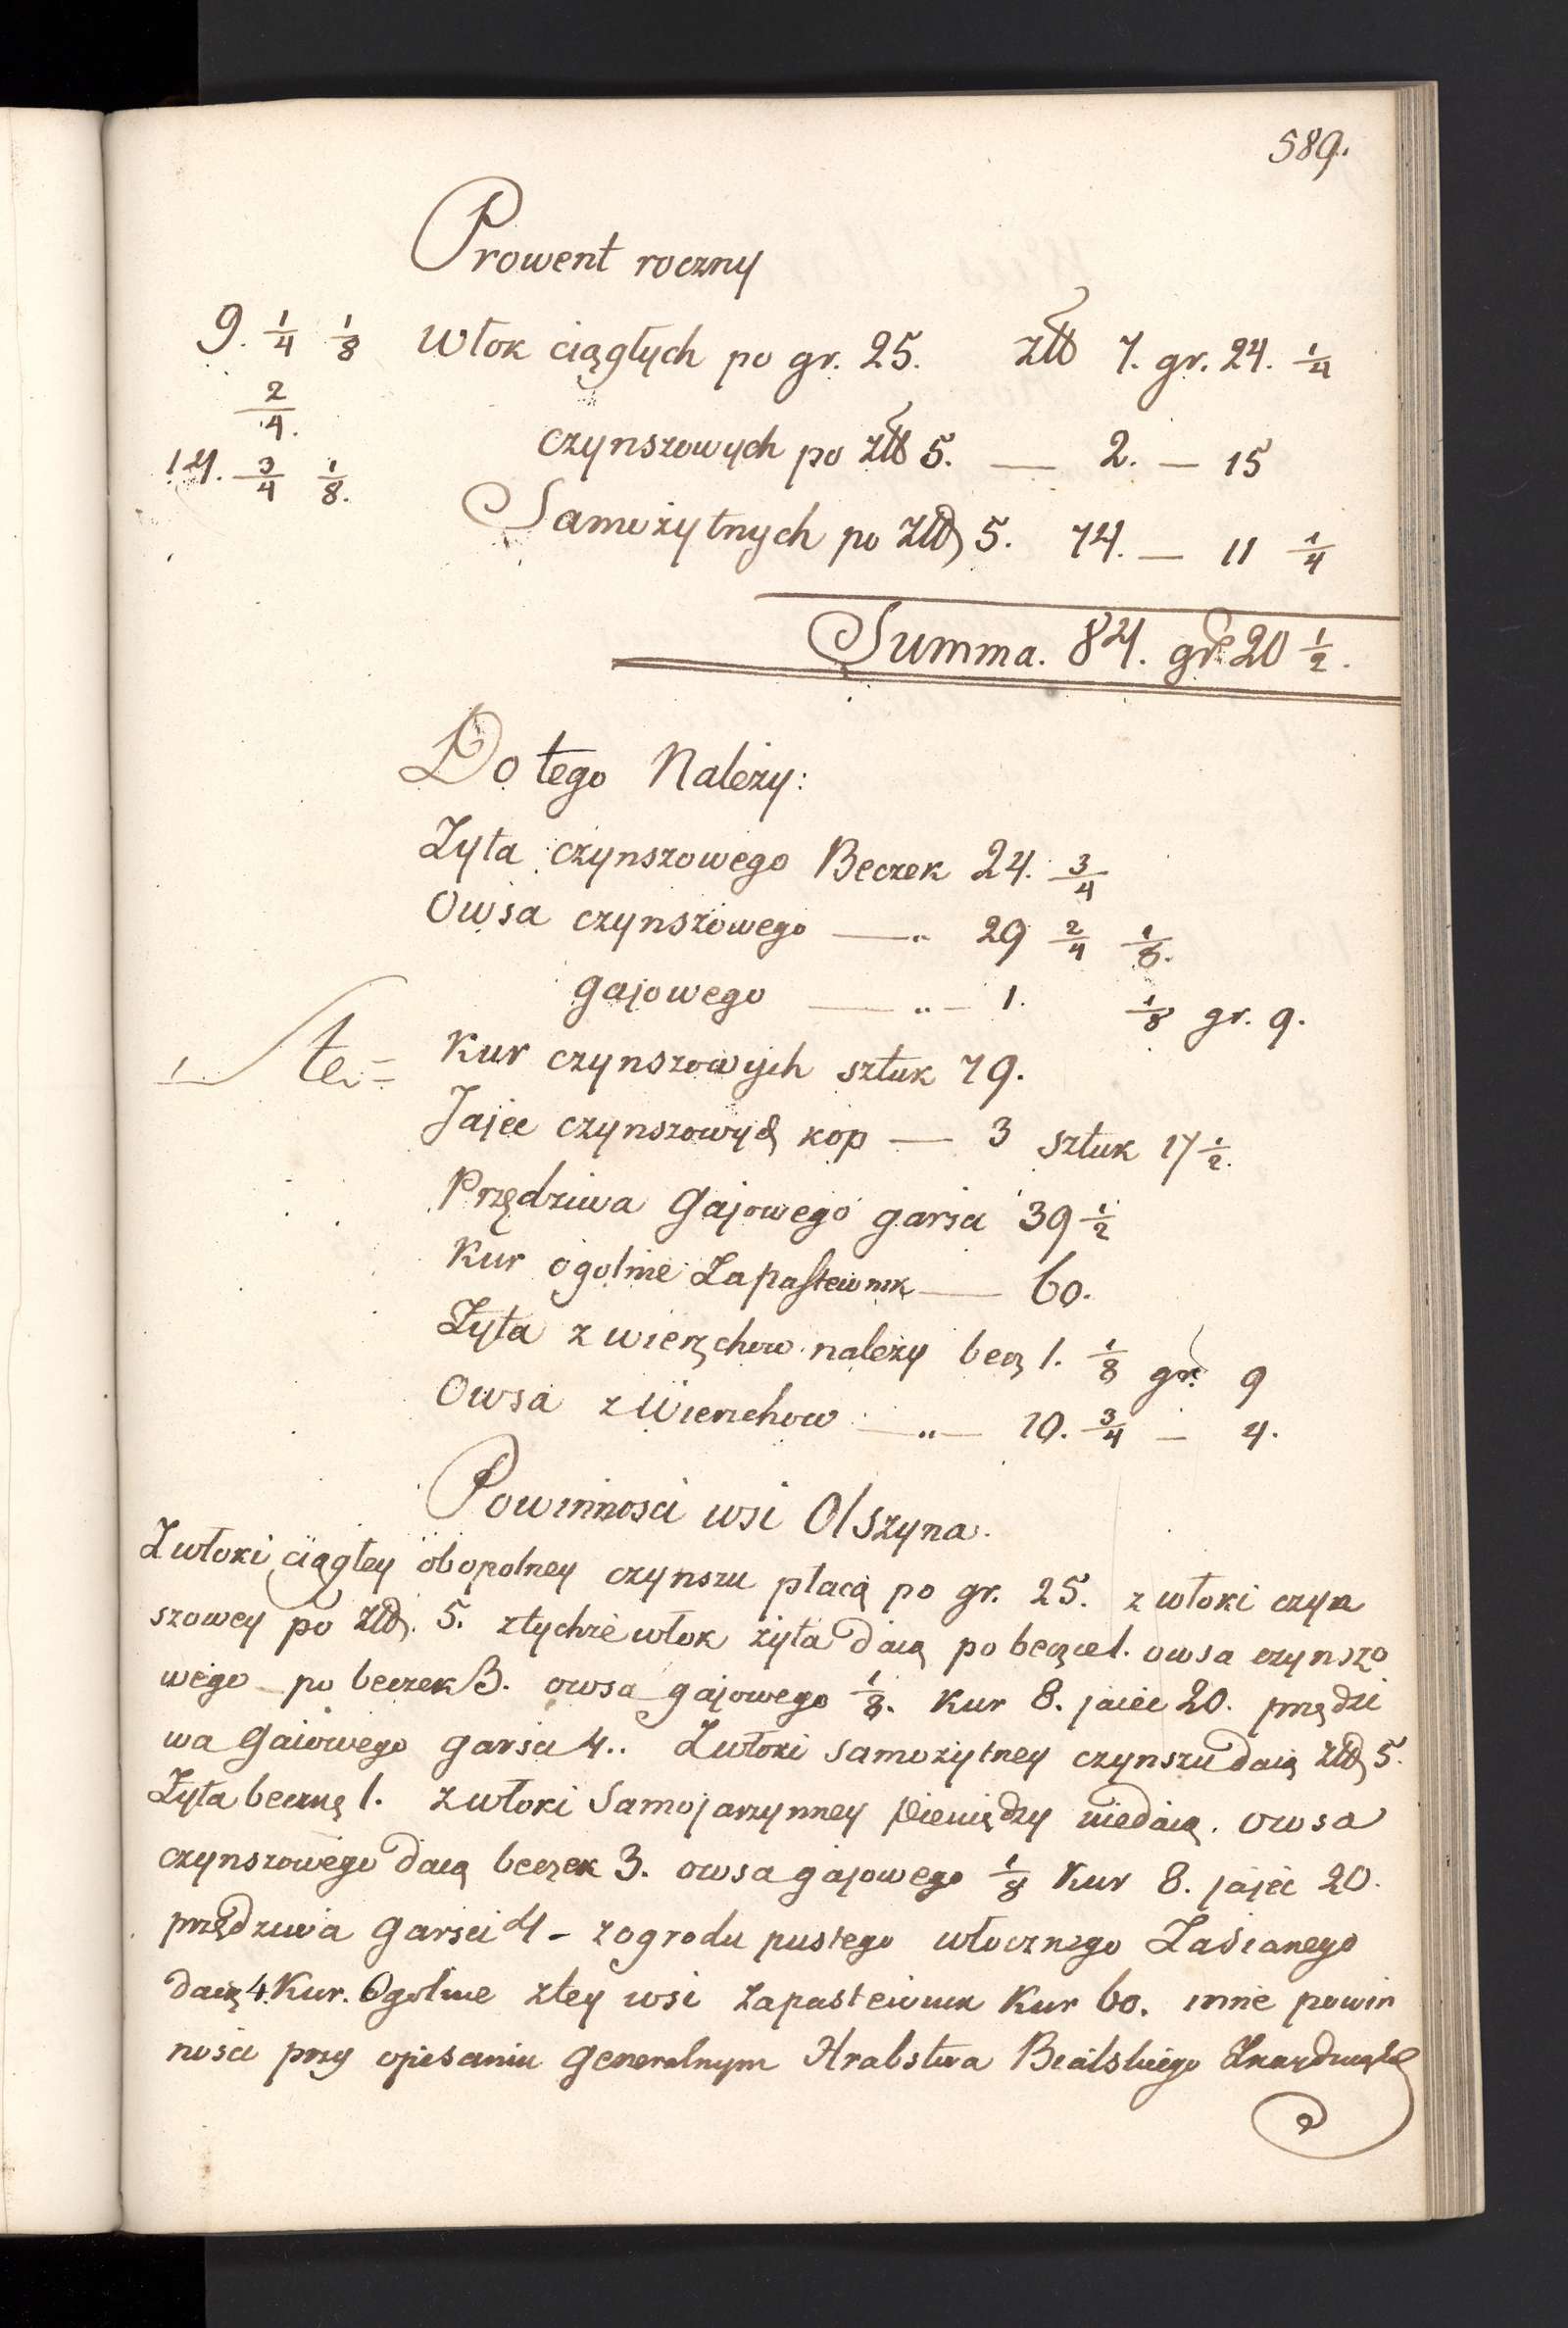 589.
Prowent roczny
9. 1/4 1/8 Włok ciągłych po gr. 25. złł 7. gr. 24. 1/4
2/4. czynszowych po złł 5. — 2. — 15
14. 3/4 1/8. Samożytnych po złł 5. 74. — 11 1/4
Summa. 84. gr. 20 1/2.
Do tego Należy:
Żyta czynszowego Beczek 24. 3/4
Owsa czynszowego — „ 29 2/4 1/8.
gajowego — „ — 1. 1/8 gr. 9.
Kur czynszowych sztuk 79.
Jajec czynszowych kop — 3 sztuk 17 1/2.
Przędziwa Gajowego garsci 39 1/2
Kur ogolnie Zapastewnik — 60.
Żyta z wierzchow należy becz 1. 1/8 gr. 9
Owsa z Wierzchow — „ — 10. 3/4 — 4.
Powinnosci wsi Olszyna.
Z włoki ciągłey obopolney czynszu płacą po gr. 25. z włoki czyn
szowey po złł. 5. z tychże włok żyta daią po beczce 1. owsa czynszo
wego po beczek 3. owsa gajowego 1/8. Kur 8. jaiec 20. przędzi
wa Gaiowego garsci 4.. Z włoki samożytney czynszu daią złł 5.
Żyta beczkę 1. z włoki Samojarzynney pieniędzy niedaią. owsa
czynszowego daią beczek 3. owsa gajowego 1/8 Kur 8. jajec 20.
przędziwa Garsci 4 - z ogrodu pustego włocznego Zasianego
daią 4 Kur. Ogolnie z tey wsi zapastewnik Kur 60. inne powin
nosci przy opisaniu Generalnym Hrabstwa Bialskiego Znayduią się